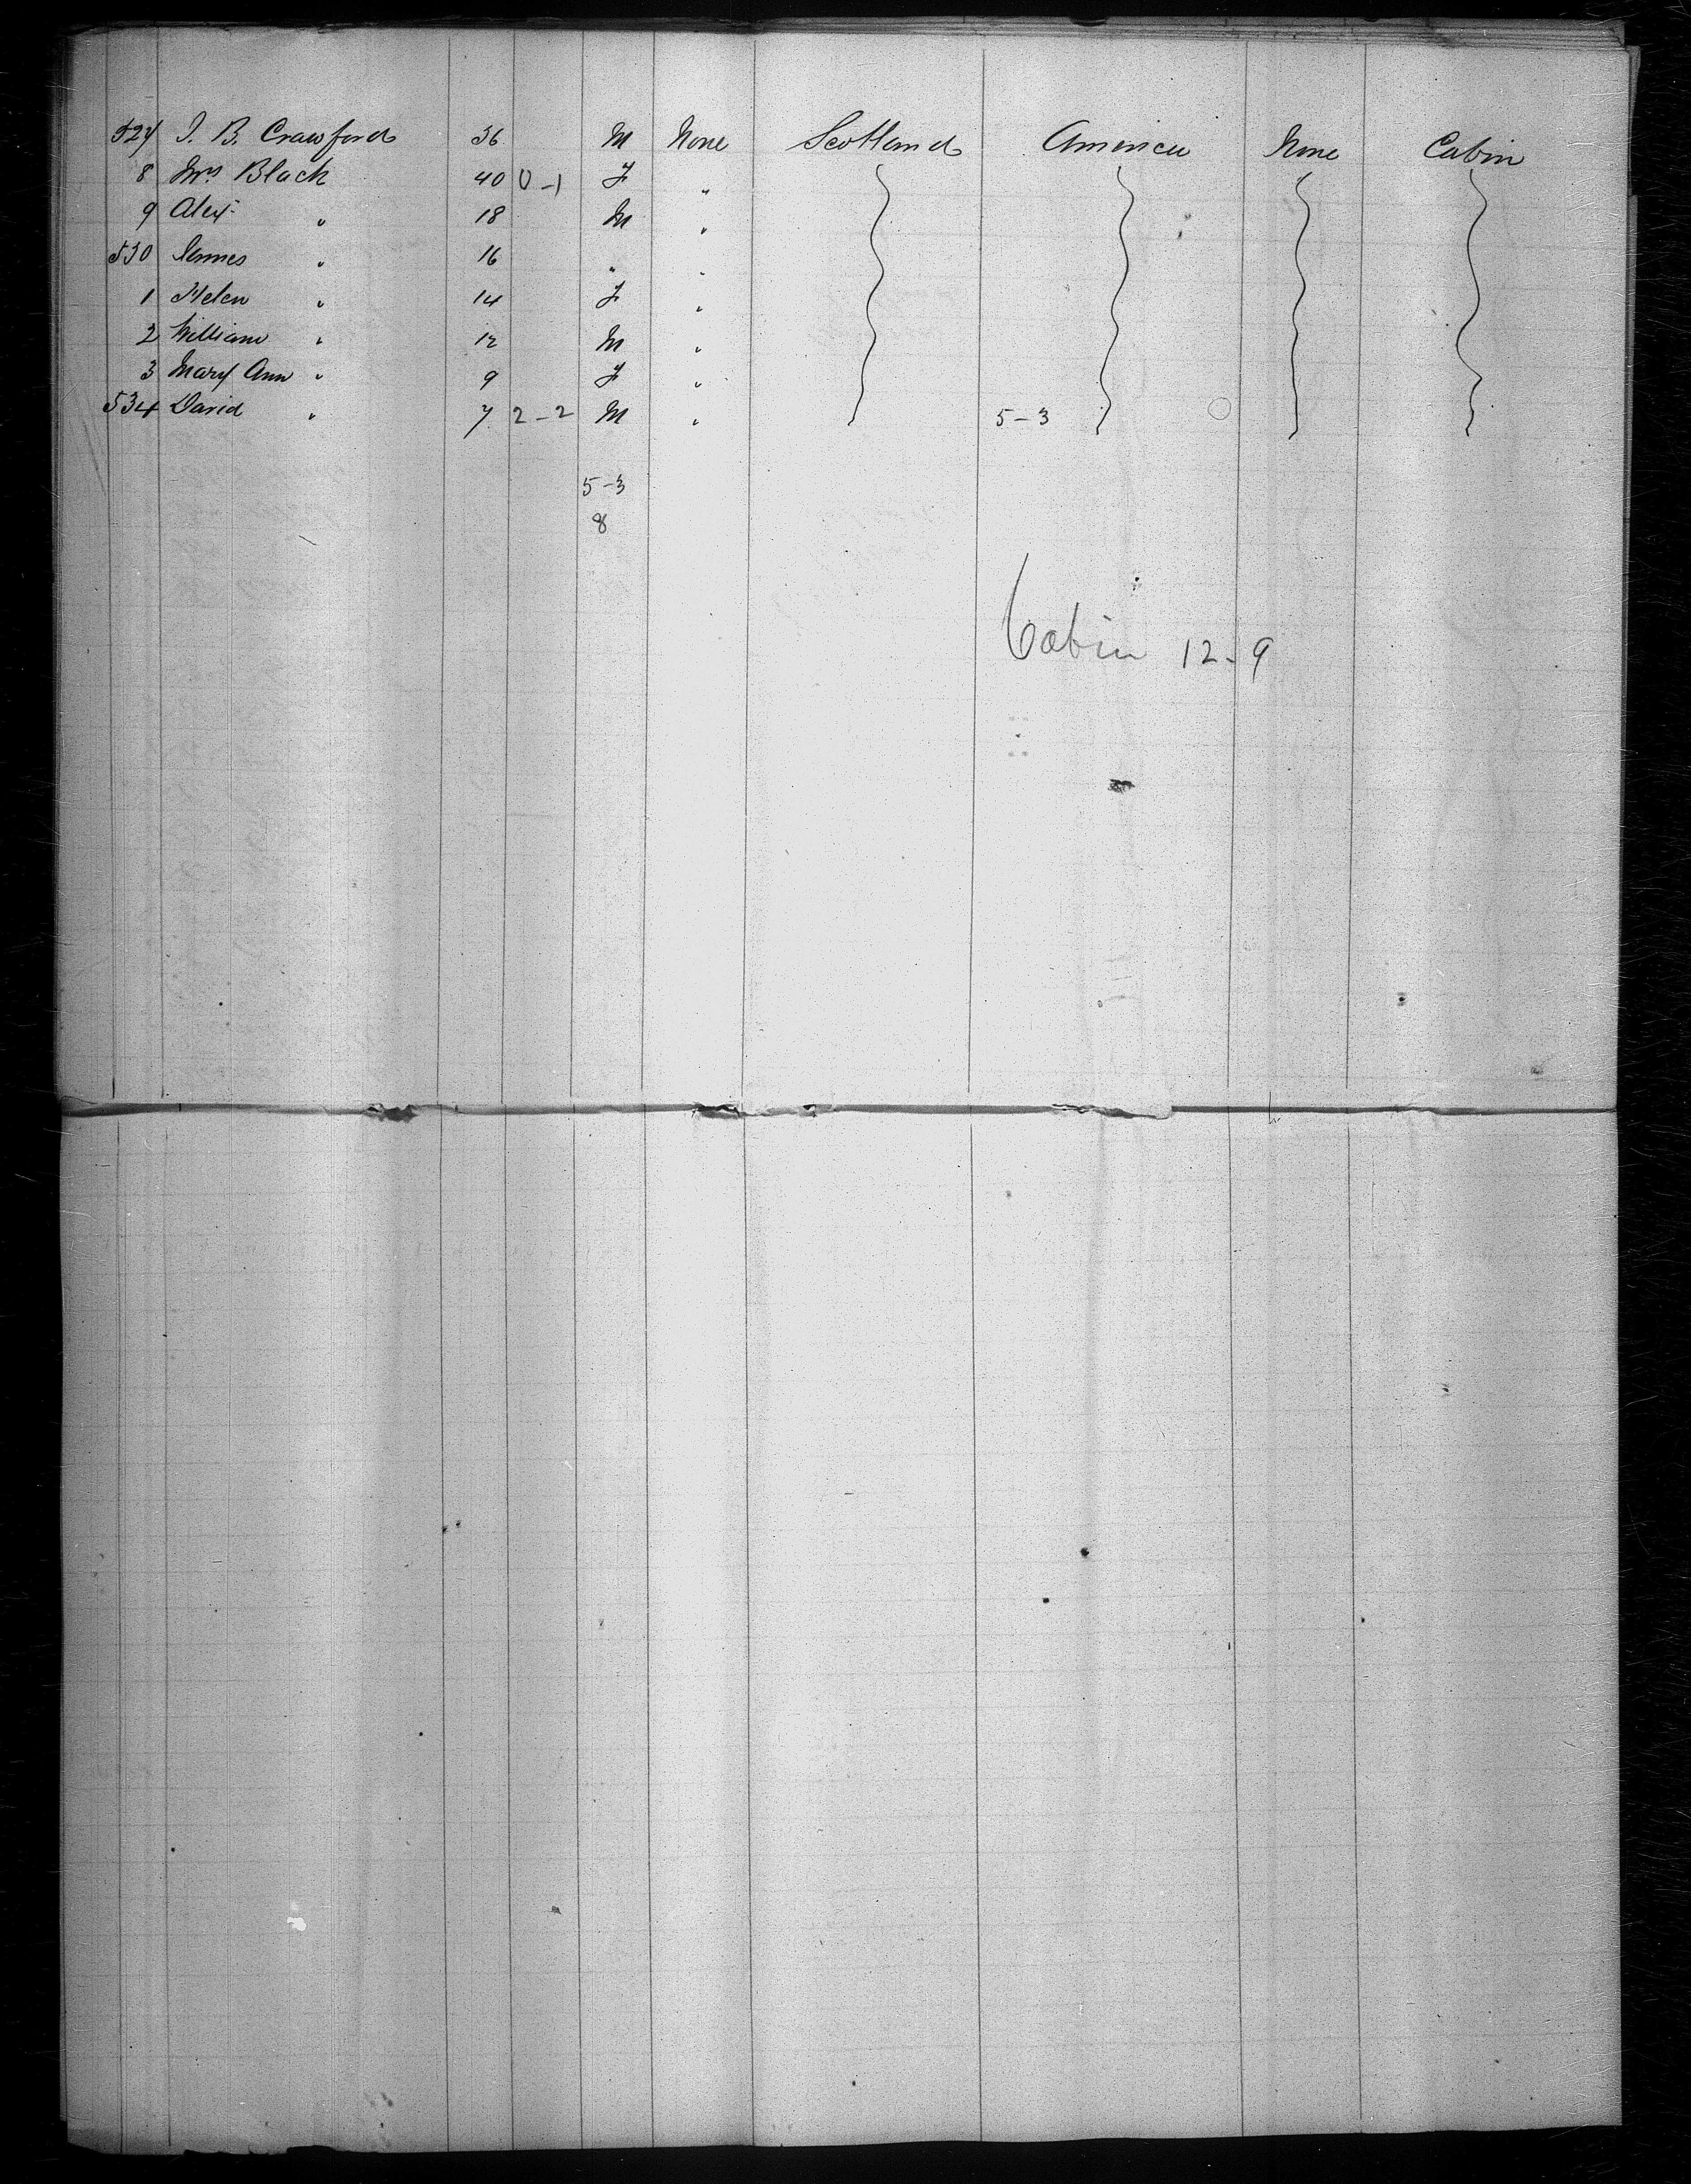 527 J. B. Crawford 36 M None Scotland America None Cabin
8 Mrs Black 40 0-1 F "
9 Alex " 18 M "
530 James " 16 " "
1 Helen " 14 F "
2 William " 12 M "
3 Mary Ann " 9 F "
534 David " 7 2-2 M " 5-3
5-3
8
Cabin 12-9